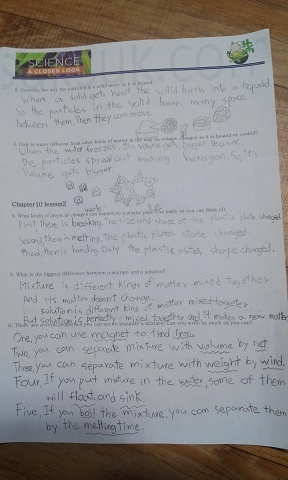 SCIENCE
A CLOSER LOOK
2. Describe the way the particles in a solid move as it is heated.
When a solid gets heat the solid turns into a liquid.
So the particles in the solid have many space
between them. Then they can move.
3. How is water different from other kinds of matter in the way its volume changes as it is heated or cooled?
When the water freezes, it's volume gets bigger because
The particles spread out making hexagon. So it's
volume gets bigger
Chapter10 lesson2
4. What kinds of physical changes can happen to a plastic plate?
First there is breaking. The size and shape of the plastic plate changed
Second there is melting. The plastic plates state changed
Third there is bending. Only the plastic plates, shape changed.
5. What is the biggest difference between a mixture and a solution?
Mixture is different kinds of matter mixed together.
And its matter doesn't change.
solution is different kinds of matter mixed together.
But solution is perfectly mixed together and it makes a new matter
6. There are several you can use to separate a mixture. Can you write as much as you can?
One, you can use magnet to find iron.
Two, you can separate mixture with volume by net
Three, you can separate mixture with weight by wind.
Four, If you put mixture in the water, some of them
will float and sink.
Five, If you boil the mixture, you can separate them
by the melting time.